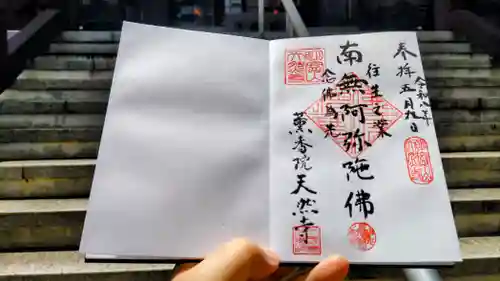 奉拝
令和八年
五月九日
往生之業
南無阿弥陀佛
念佛為先
薫香院
天然寺